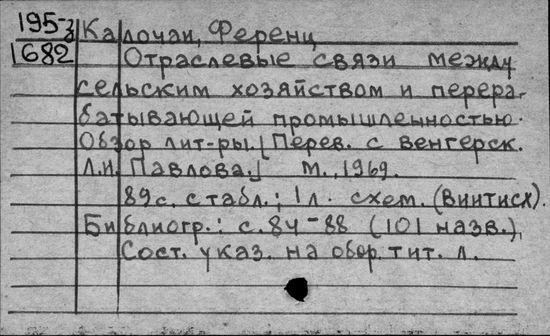 195-3 Калочаи, Ференц
1682 Отраслевые связи между
сельским хозяйством и перера-
батывающей промышленностью.
Обзор лит-ры. [Перев. с венгерск.
Л.И. Павлова.] М., 1969.
89 с. с табл.; 1 л. схем. (ВИНТИСХ).
Библиогр.: с. 84-88 (101 назв.).
Сост. указ. на обор. тит. л.